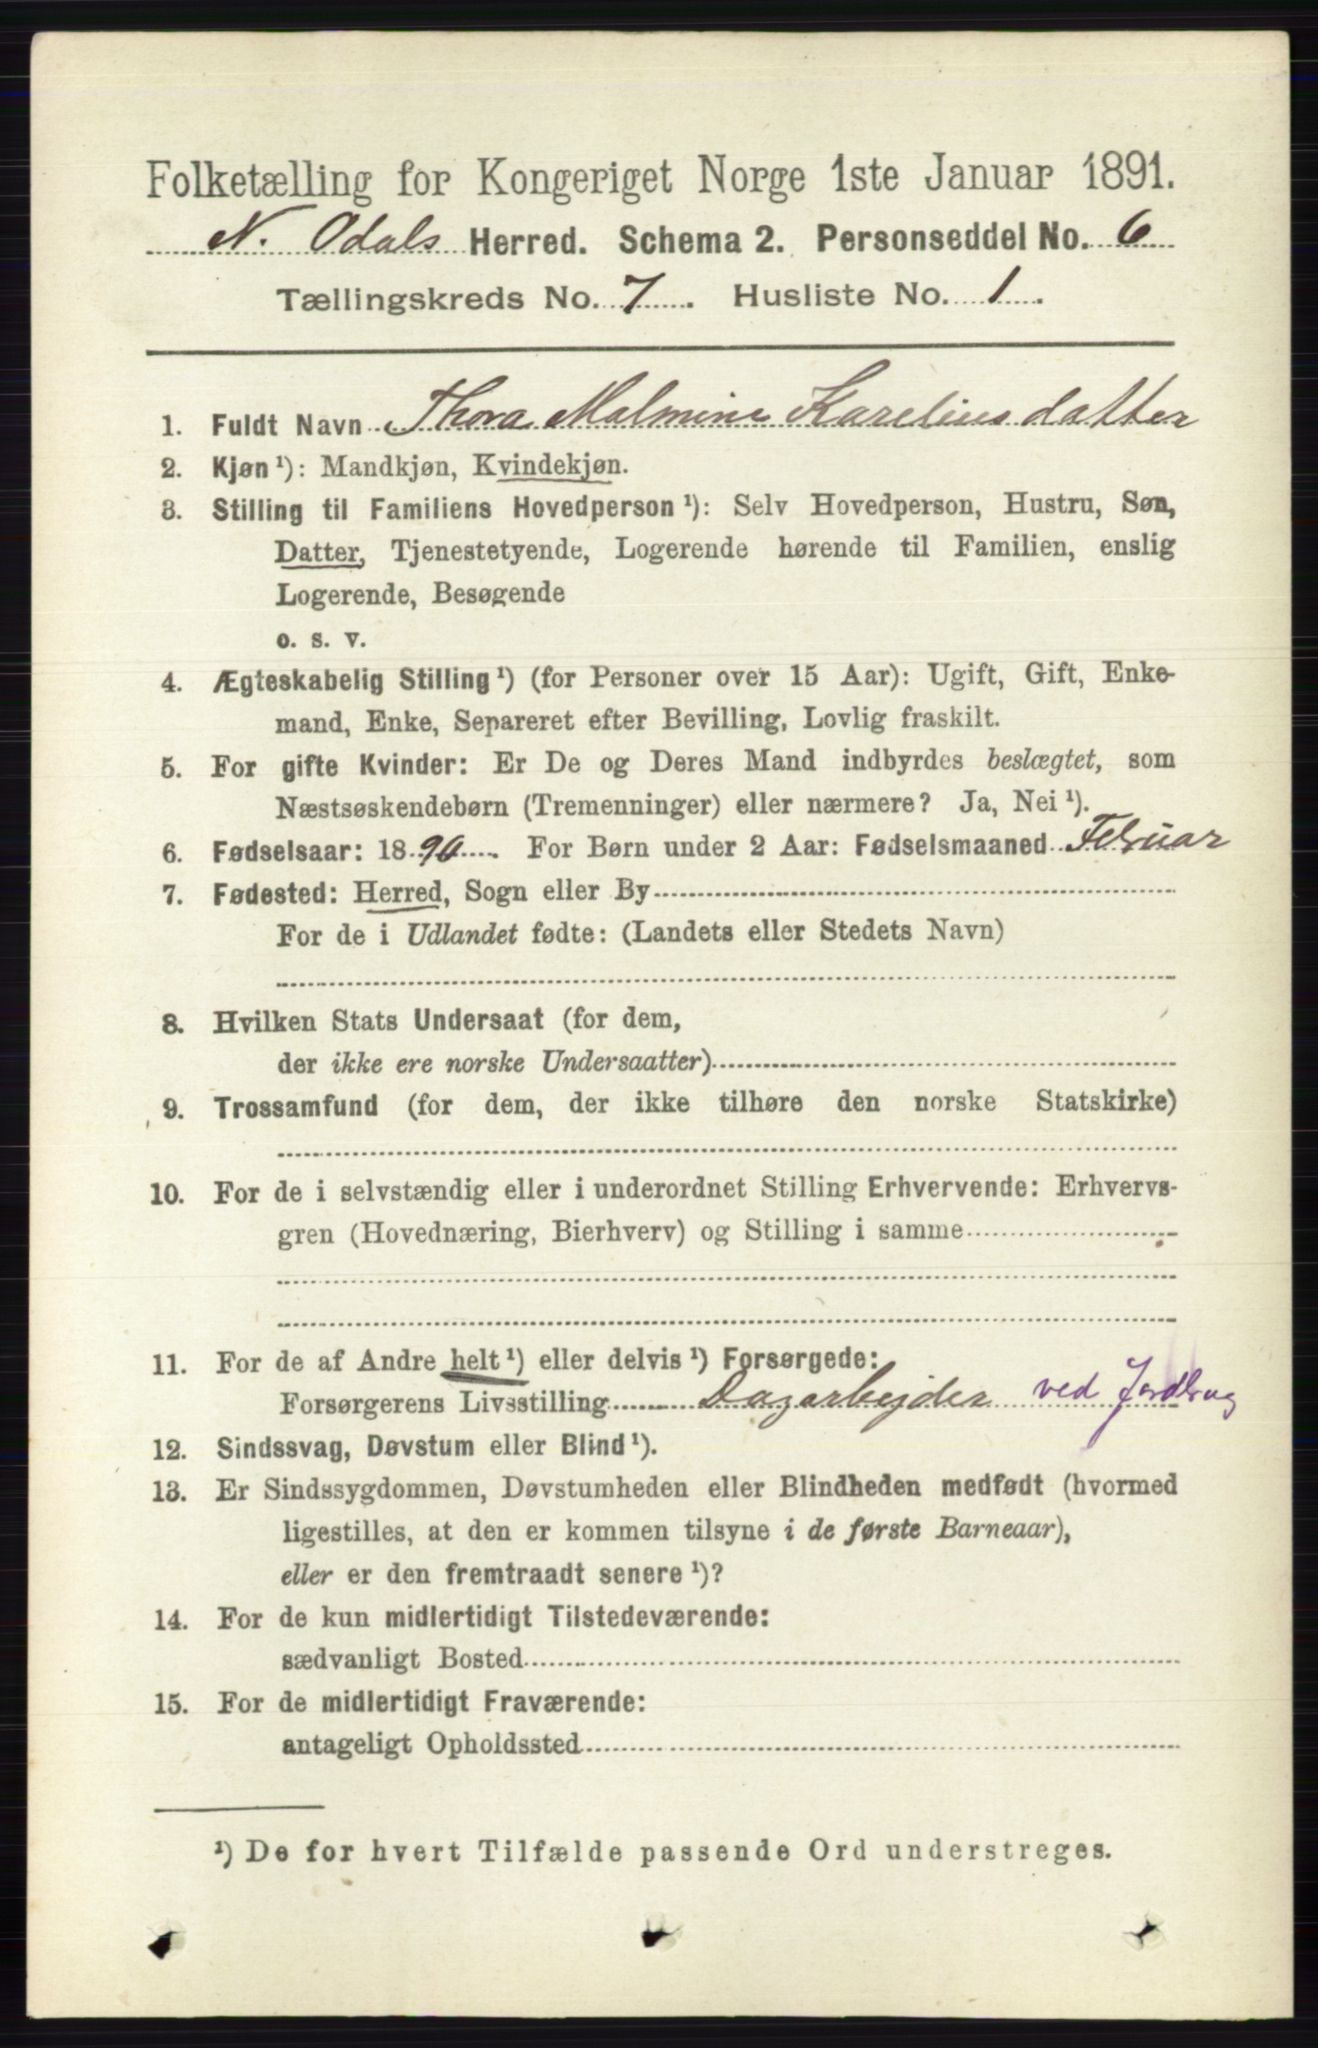 Folketælling for Kongeriget Norge 1ste Januar 1891.
N. Odals Herred. Schema 2. Personseddel No. 6
Tællingskreds No. 7. Husliste No. 1.
1. Fuldt Navn Thora Malmine Kareliusdatter
2. Kjøn¹): Mandkjøn, Kvindekjøn.
3. Stilling til Familiens Hovedperson¹): Selv Hovedperson, Hustru, Søn,
Datter, Tjenestetyende, Logerende hørende til Familien, enslig
Logerende, Besøgende
o. s. v.
4. Ægteskabelig Stilling¹) (for Personer over 15 Aar): Ugift, Gift, Enke-
mand, Enke, Separeret efter Bevilling, Lovlig fraskilt.
5. For gifte Kvinder: Er De og Deres Mand indbyrdes beslægtet, som
Næstsøskendebørn (Tremenninger) eller nærmere? Ja, Nei¹).
6. Fødselsaar: 1890. For Børn under 2 Aar: Fødselsmaaned Februar
7. Fødested: Herred, Sogn eller By
For de i Udlandet fødte: (Landets eller Stedets Navn)
8. Hvilken Stats Undersaat (for dem,
der ikke ere norske Undersaatter)
9. Trossamfund (for dem, der ikke tilhøre den norske Statskirke)
10. For de i selvstændig eller i underordnet Stilling Erhvervende: Erhvervs-
gren (Hovednæring, Bierhverv) og Stilling i samme
11. For de af Andre helt¹) eller delvis¹) Forsørgede:
Forsørgerens Livsstilling Dagarbejder ved Jordbrug
12. Sindssvag, Døvstum eller Blind¹).
13. Er Sindssygdommen, Døvstumheden eller Blindheden medfødt (hvormed
ligestilles, at den er kommen tilsyne i de første Barneaar),
eller er den fremtraadt senere¹)?
14. For de kun midlertidigt Tilstedeværende:
sædvanligt Bosted
15. For de midlertidigt Fraværende:
antageligt Opholdssted
¹) De for hvert Tilfælde passende Ord understreges.